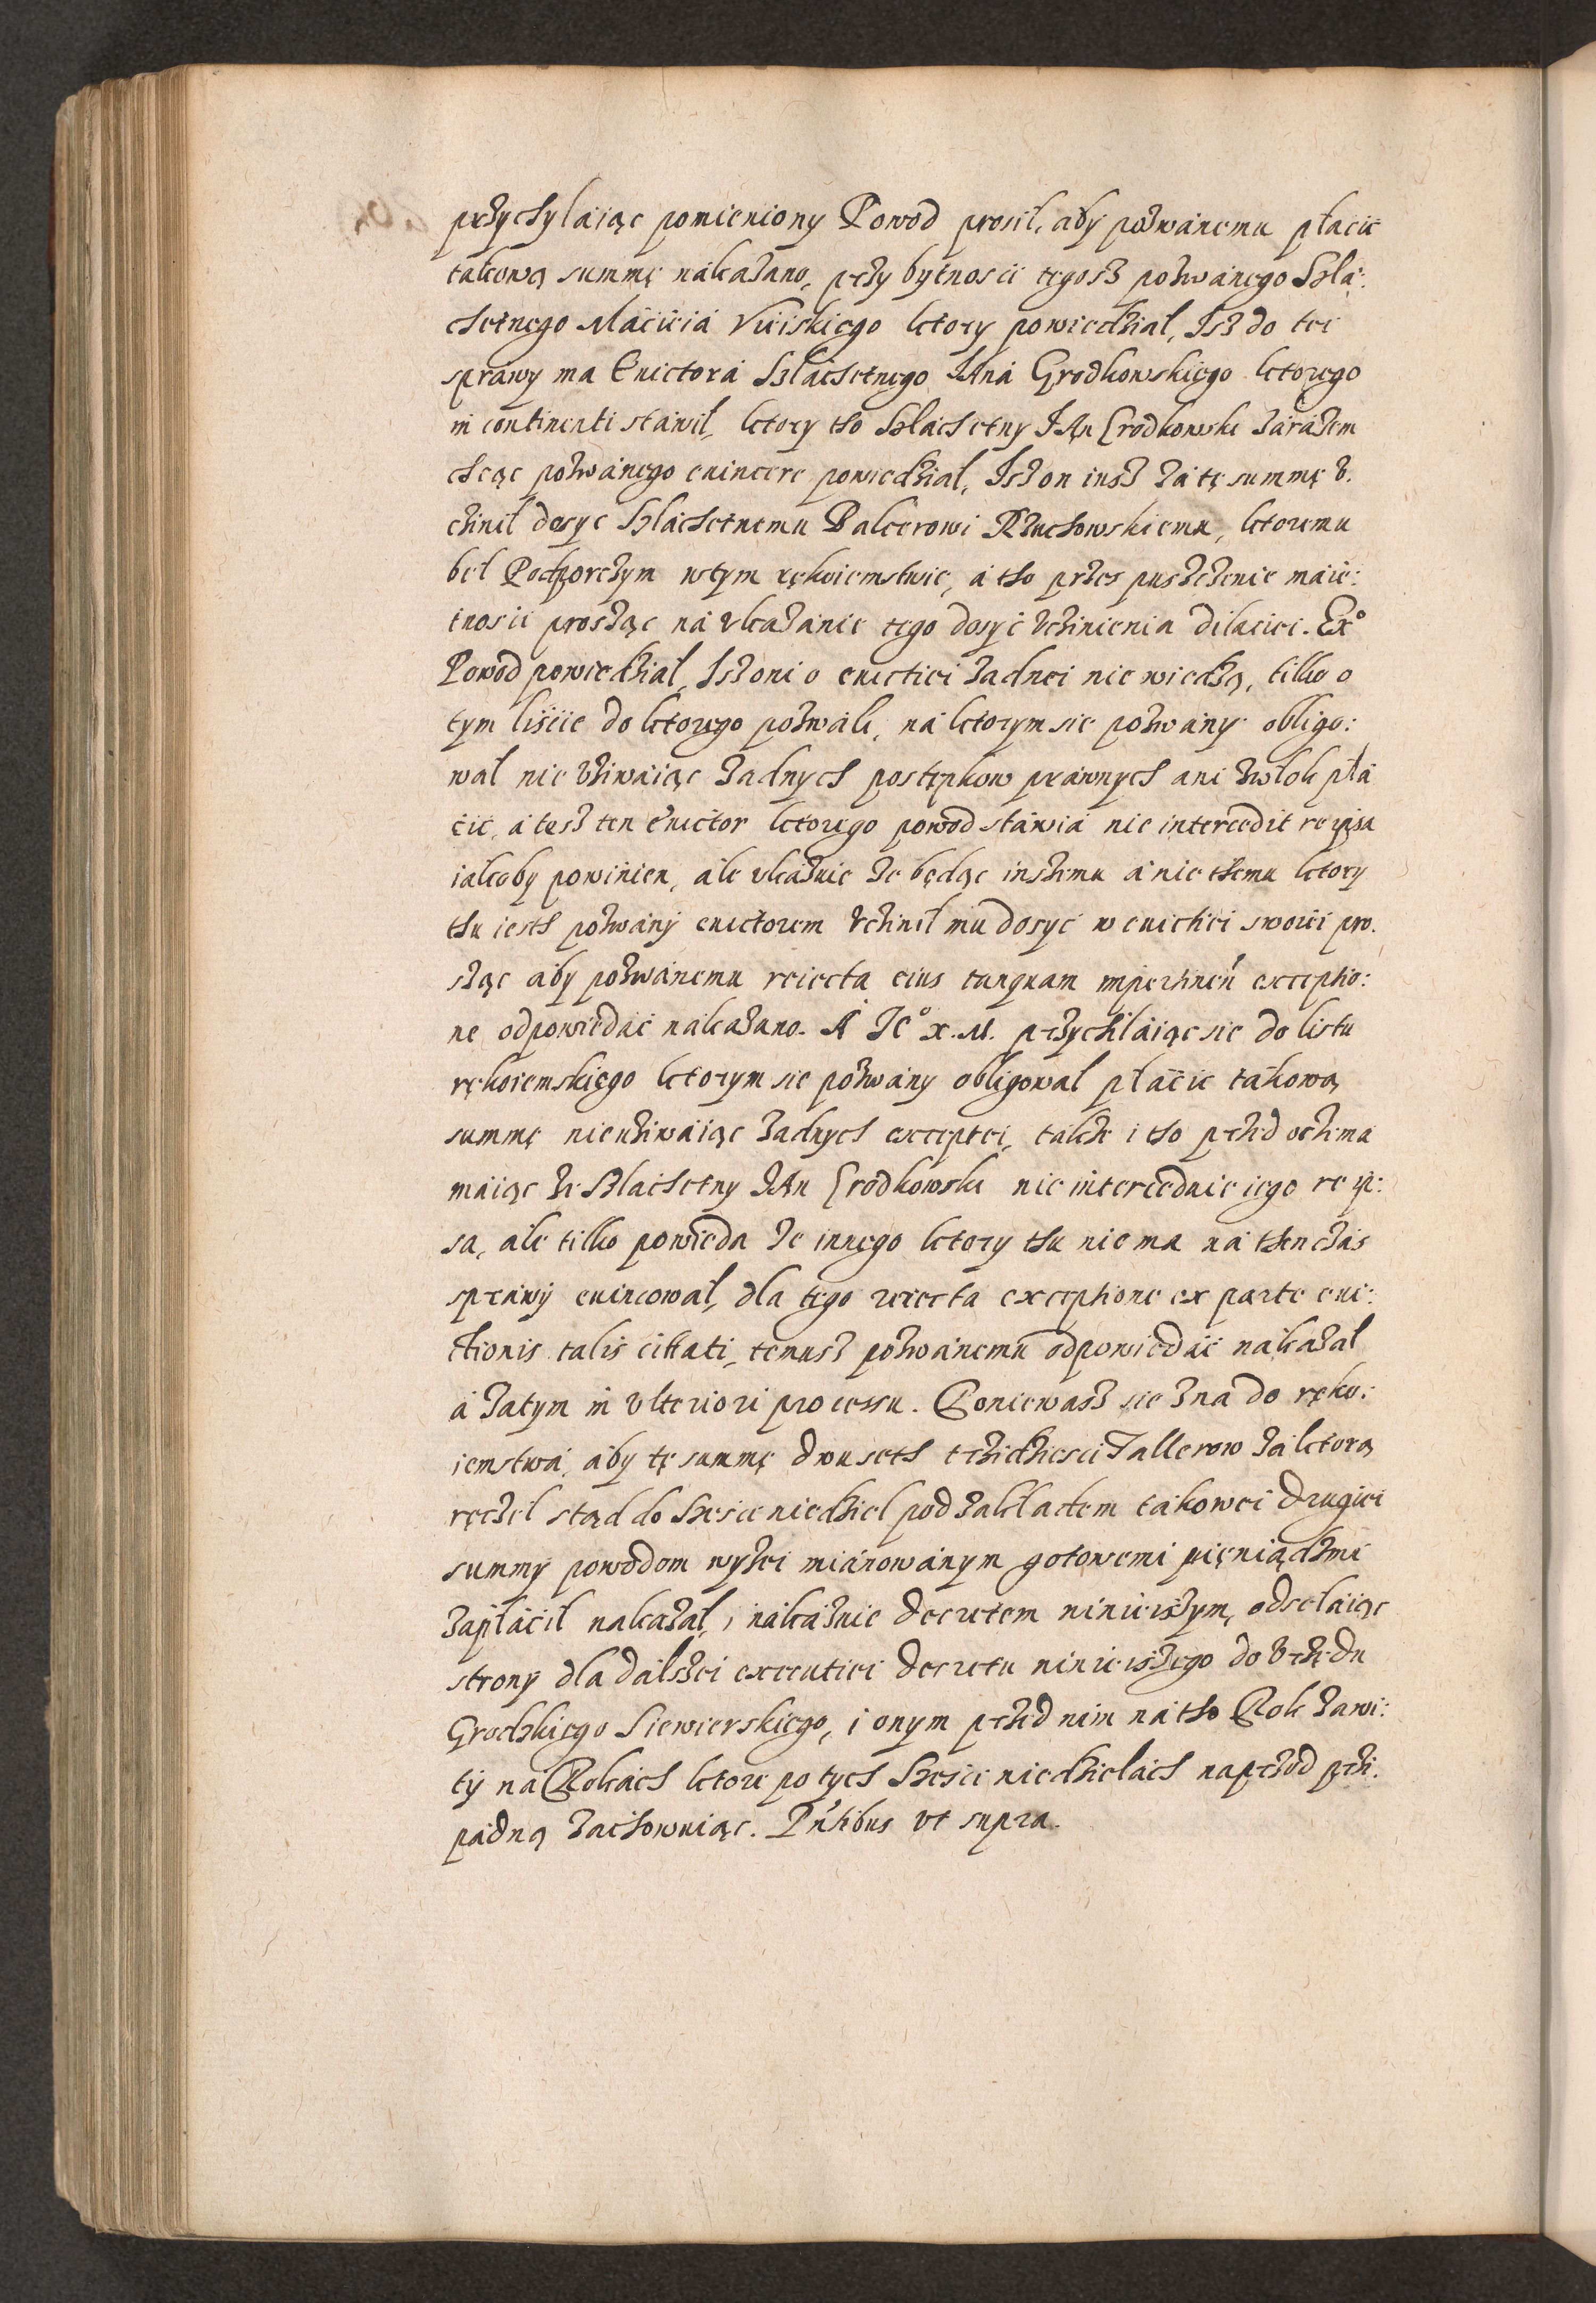 przychylaiąc pomieniony Powod prosil, aby pozwanemu płacić
takową summę nakazano, przy bytnoscii tegosz pozwanego Szla:
chetnego Macieia Viiskiego ktory powiedzial, Isz do tei
sprawy ma Evictora Szlachetnego JAna Grodkowskiego ktorego
in continenti stawil, ktory tho Szlachetny JAn Grodkowski zarazem
chcąc pozwanego evincere powiedzial, Isz on iusz za tę summę v.
czinil dosyc Szlachetnemu Balcerowi Rzuchowskiemu, ktoremu
bel Podporczym w tym rękoiemstwie, a tho przes puszczenie maię:
tnoscii prosząc na vkazanie tego dosyć vczinienia dilaciei. Exº
Powod powiedzial, Isz oni o evictiei zadnei nie wiedzą, tilko o
tym liscie do ktorego pozwali, na ktorym sie pozwany obligo:
wal nie vziwaiąc zadnych postępkow prawnych ani zwlok pła
cić, a tesz ten Evictor ktorego powod stawia nie intercedit re ipsa
iakoby powinien, ale vkazuie ze będąc inszemu a nie themu ktory
thu iesth pozwany evictorem vczinil mu dosyć w evictiei swoiei pro.
sząc aby pozwanemu reiecta eius tanquam impertinen exceptio:
ne odpowiedać nakazano. A Jeº X. M. przychilaiąc sie do listu
rękoiemskiego ktorym sie pozwany obligowal płacić takową
summę nieuziwaiąc zadnych exceptei, takze i tho przed oczima
maiąc ze Szlachetny JAn Grodkowski nie interceduie iego re ip:
sa, ale tilko powieda ze innego ktory thu nie ma na then czas
sprawy evincowal, dla tego reiecta exceptione ex parte evi:
ctionis talis cittati, temusz pozwanemu odpowiedać nakazal
a zatym in vlteriori processu. Poniewasz sie zna do ręko:
iemstwa, aby tę summę dwuseth trzidziesci Tallerow za ktorą
ręczel stąd do szesci niedziel pod zakladem takowei drugiei
summy powodom wyzei mianowanym gotowemi pieniądzmi
zapłacil nakazal, i nakazuie decretem ninieiszym, odselaiąc
strony dla dalszei executiei decretu ninieiszego do vrzędu
Grodzkiego Siewierskiego, i onym przed nim na tho Rok zawi:
ty na Rokach ktore po tych szesci niedzielach naprzod przi.
padną zachowuiąc. Pntibus vt supra.